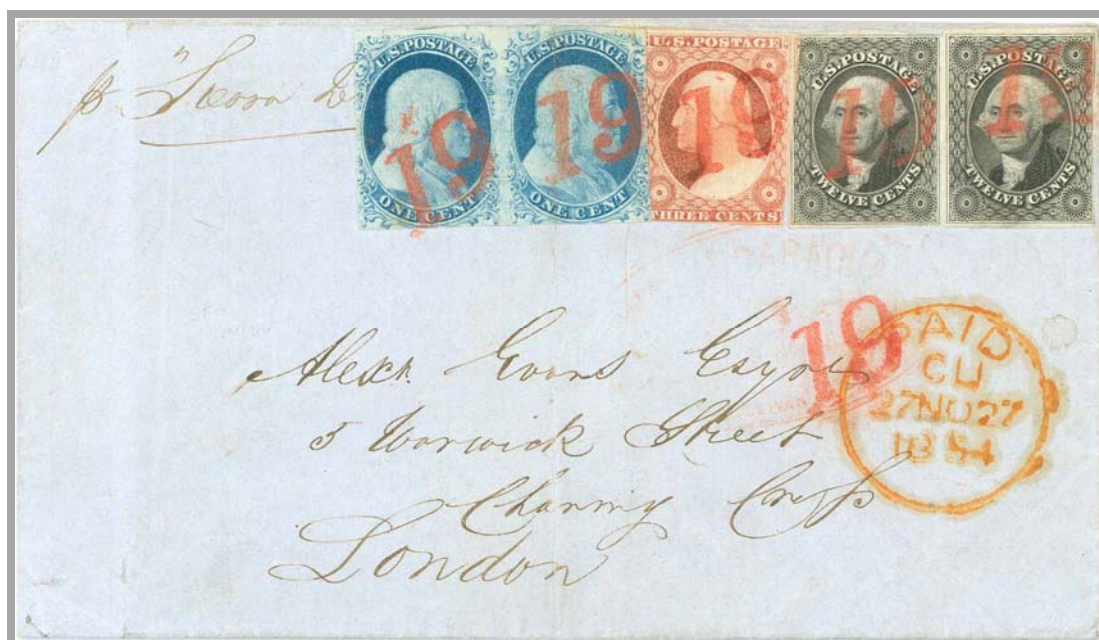 U.S. POSTAGE
ONE CENT
U.S. POSTAGE
ONE CENT
U.S. POSTAGE
THREE CENTS
U.S. POSTAGE
TWELVE CENTS
U.S. POSTAGE
TWELVE CENTS
19
19
19
19
19
19
PAID
27NO27
1854
Alexr. Evans Esqre
5 Warwick Street
Charing Cross
London